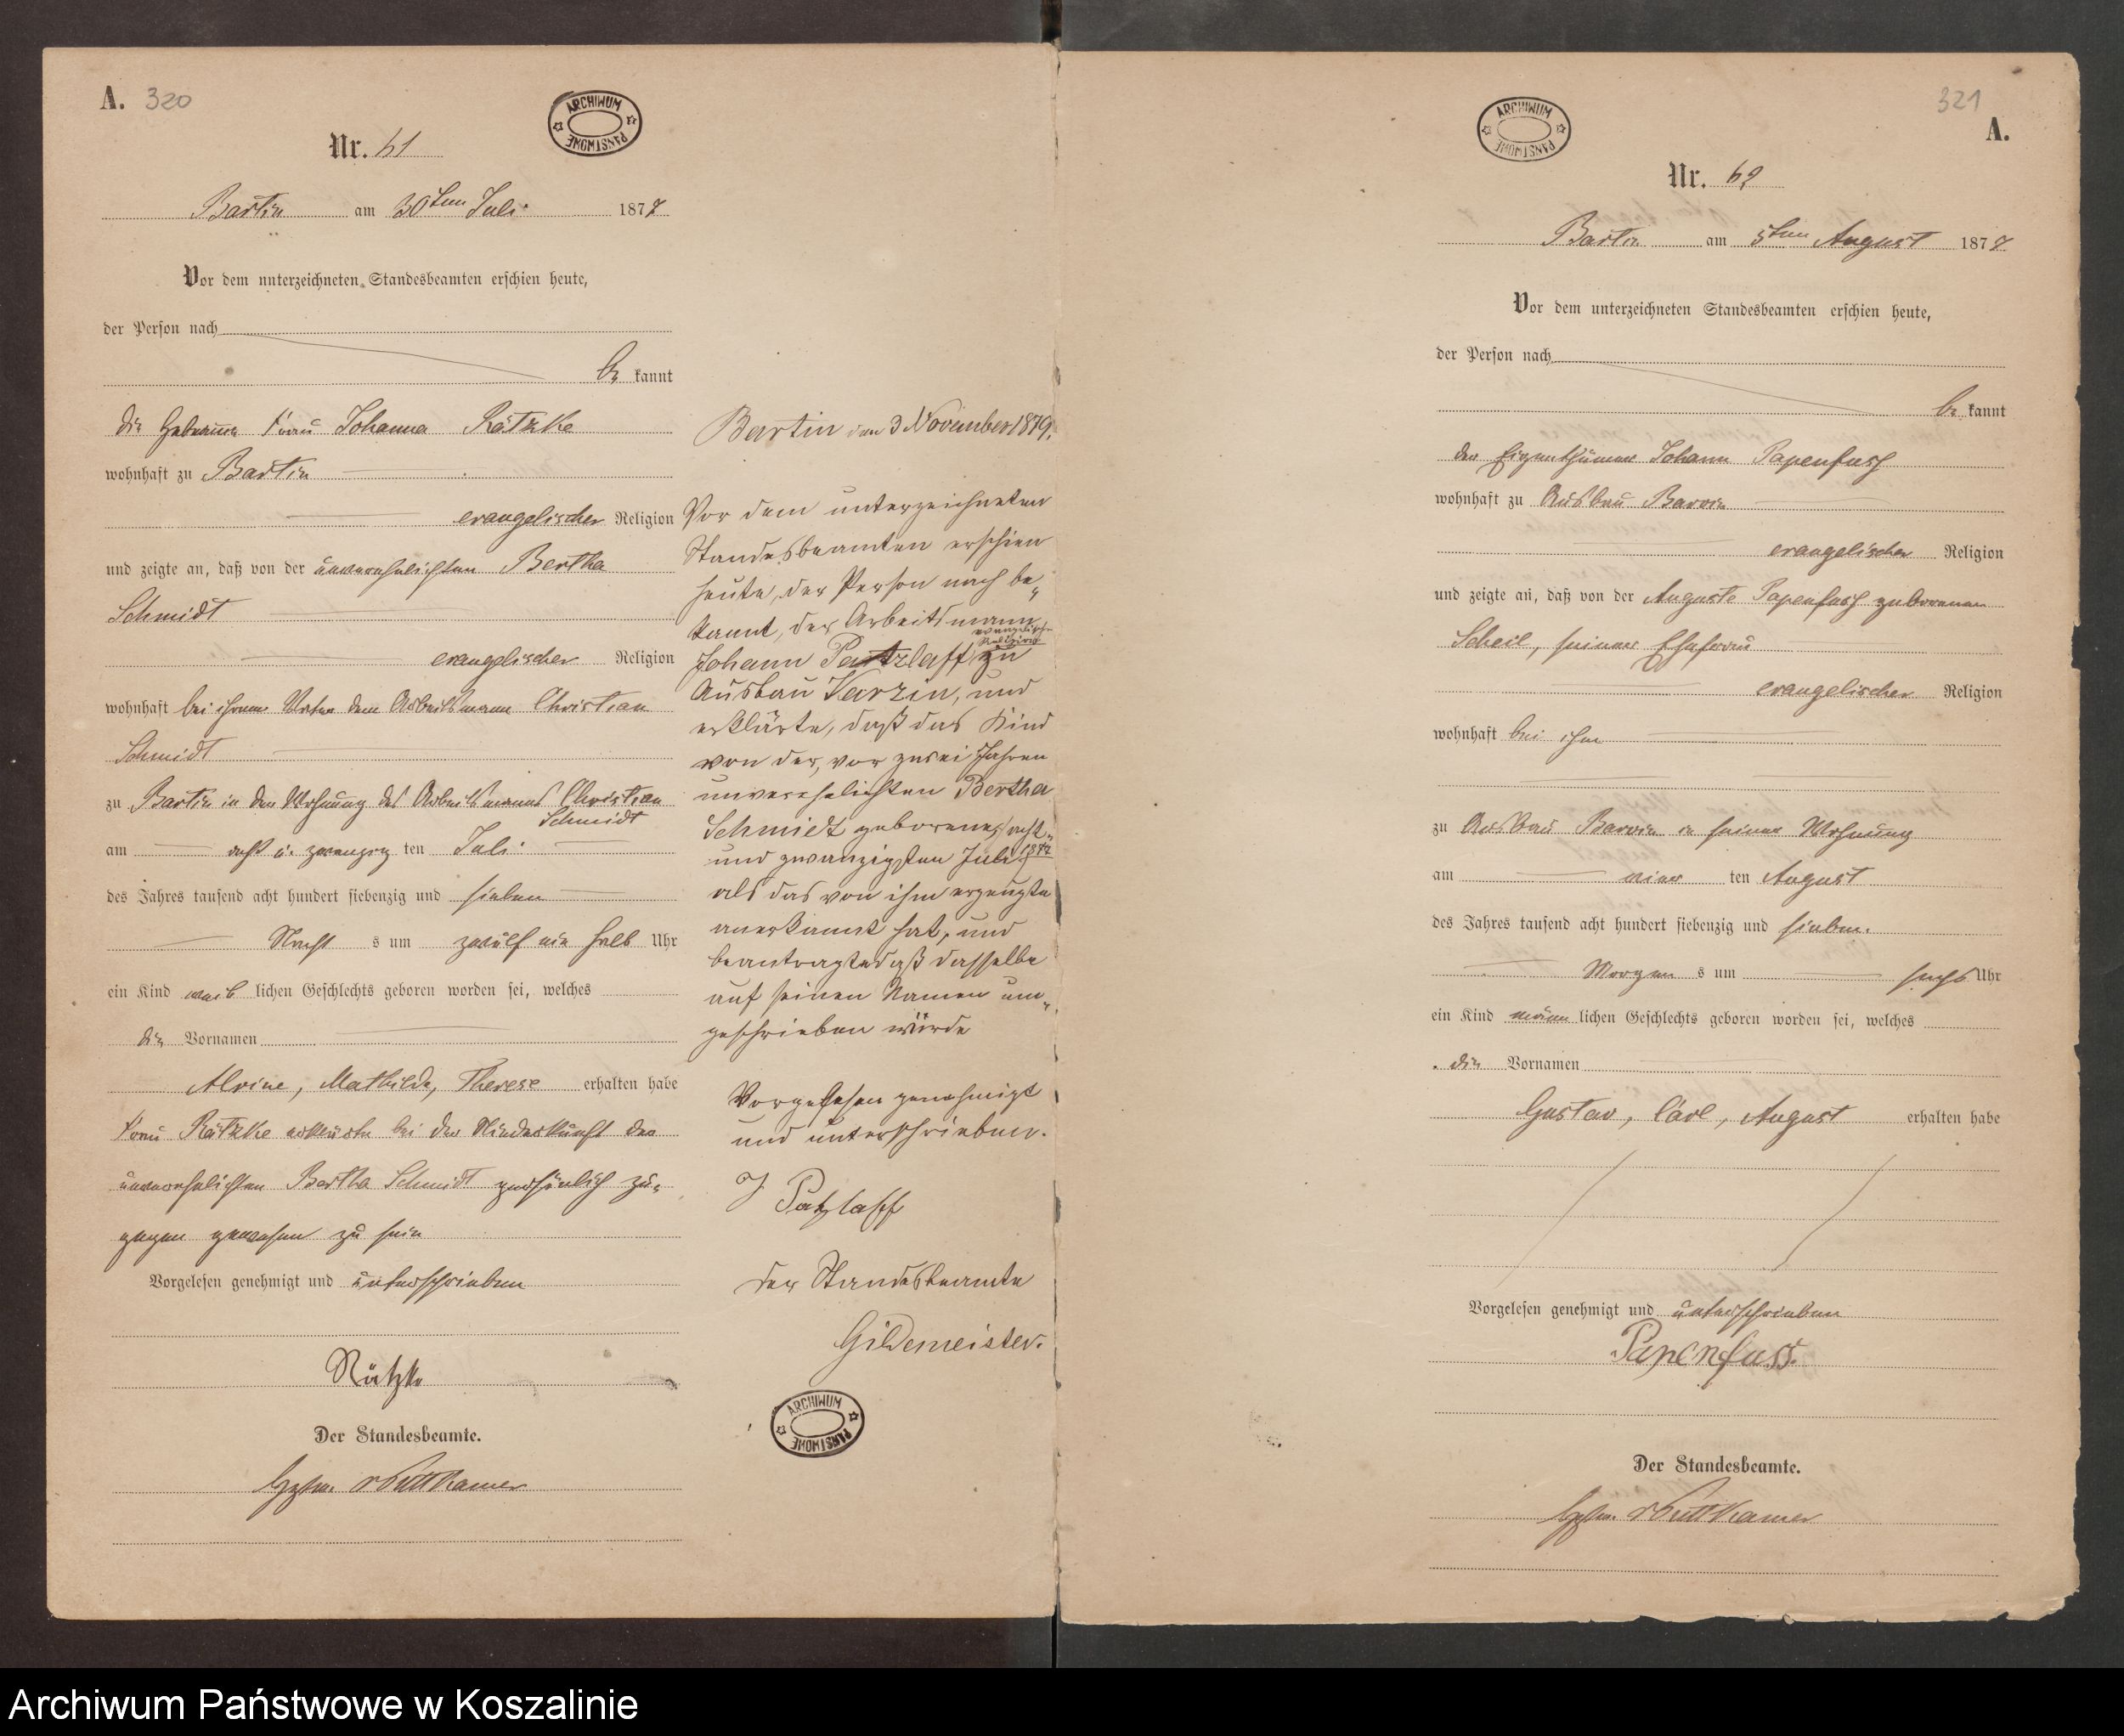 A. 320
ARCHIWUM PAŃSTWOWE
Nr. 61
Bartin am 30ten Juli 1877
Vor dem unterzeichneten Standesbeamten erschien heute,
der Person nach
be kannt
die Hebamme Frau Johanna Rätzke
wohnhaft zu Bartin
evangelischer Religion
und zeigte an, daß von der unverehelichten Bertha
Schmidt
evangelischer Religion
wohnhaft bei ihrem Vater dem Arbeitsmann Christian
Schmidt
zu Bartin in der Wohnung des Arbeitsmanns Christian
Schmidt
am acht u. zwanzig ten Juli
des Jahres tausend acht hundert siebenzig und sieben
Nacht s um zwölf ein halb Uhr
ein Kind weib lichen Geschlechts geboren worden sei, welches
die Vornamen
Alvine, Mathilde, Therese erhalten habe
Frau Rätzke erklärte bei der Niederkunft der
unverehelichten Bertha Schmidt persönlich zu-
gegen gewesen zu sein
Vorgelesen genehmigt und unterschrieben
Rätzke
Der Standesbeamte.
v Puttkamer
Bartin den 3 November 1879.
Vor dem unterzeichneten
Standesbeamten erschien
heute, der Person nach be-
kannt, der Arbeitsmann
evangelischer Religion
Johann Patzlaff zu
Ausbau Varzin, und
erklärte, daß das Kind
von der, vor zwei Jahren
unverehelichten Bertha
Schmidt geborenes acht-
und zwanzigsten Juli 1877
als das von ihm erzeugte
anerkannt hat, und
beantragte daß dasselbe
auf seinen Namen um-
geschrieben würde
Vorgelesen genehmigt
und unterschrieben.
J Patzlaff
Der Standesbeamte
Gildemeister.
ARCHIWUM PAŃSTWOWE
321
A.
ARCHIWUM PAŃSTWOWE
Nr. 62
Bartin am 5ten August 1877
Vor dem unterzeichneten Standesbeamten erschien heute,
der Person nach
be kannt
der Eigenthümer Johann Papenfuß
wohnhaft zu Ausbau Barvin
evangelischer Religion
und zeigte an, daß von der Auguste Papenfuß geborenen
Scheil, seiner Ehefrau
evangelischer Religion
wohnhaft bei ihm
zu Ausbau Barvin in seiner Wohnung
am vier ten August
des Jahres tausend acht hundert siebenzig und sieben.
Morgen s um sechs Uhr
ein Kind männ lichen Geschlechts geboren worden sei, welches
die Vornamen
Gustav, Carl, August erhalten habe
Vorgelesen genehmigt und unterschrieben
Papenfuss.
Der Standesbeamte.
v Puttkamer
Archiwum Państwowe w Koszalinie